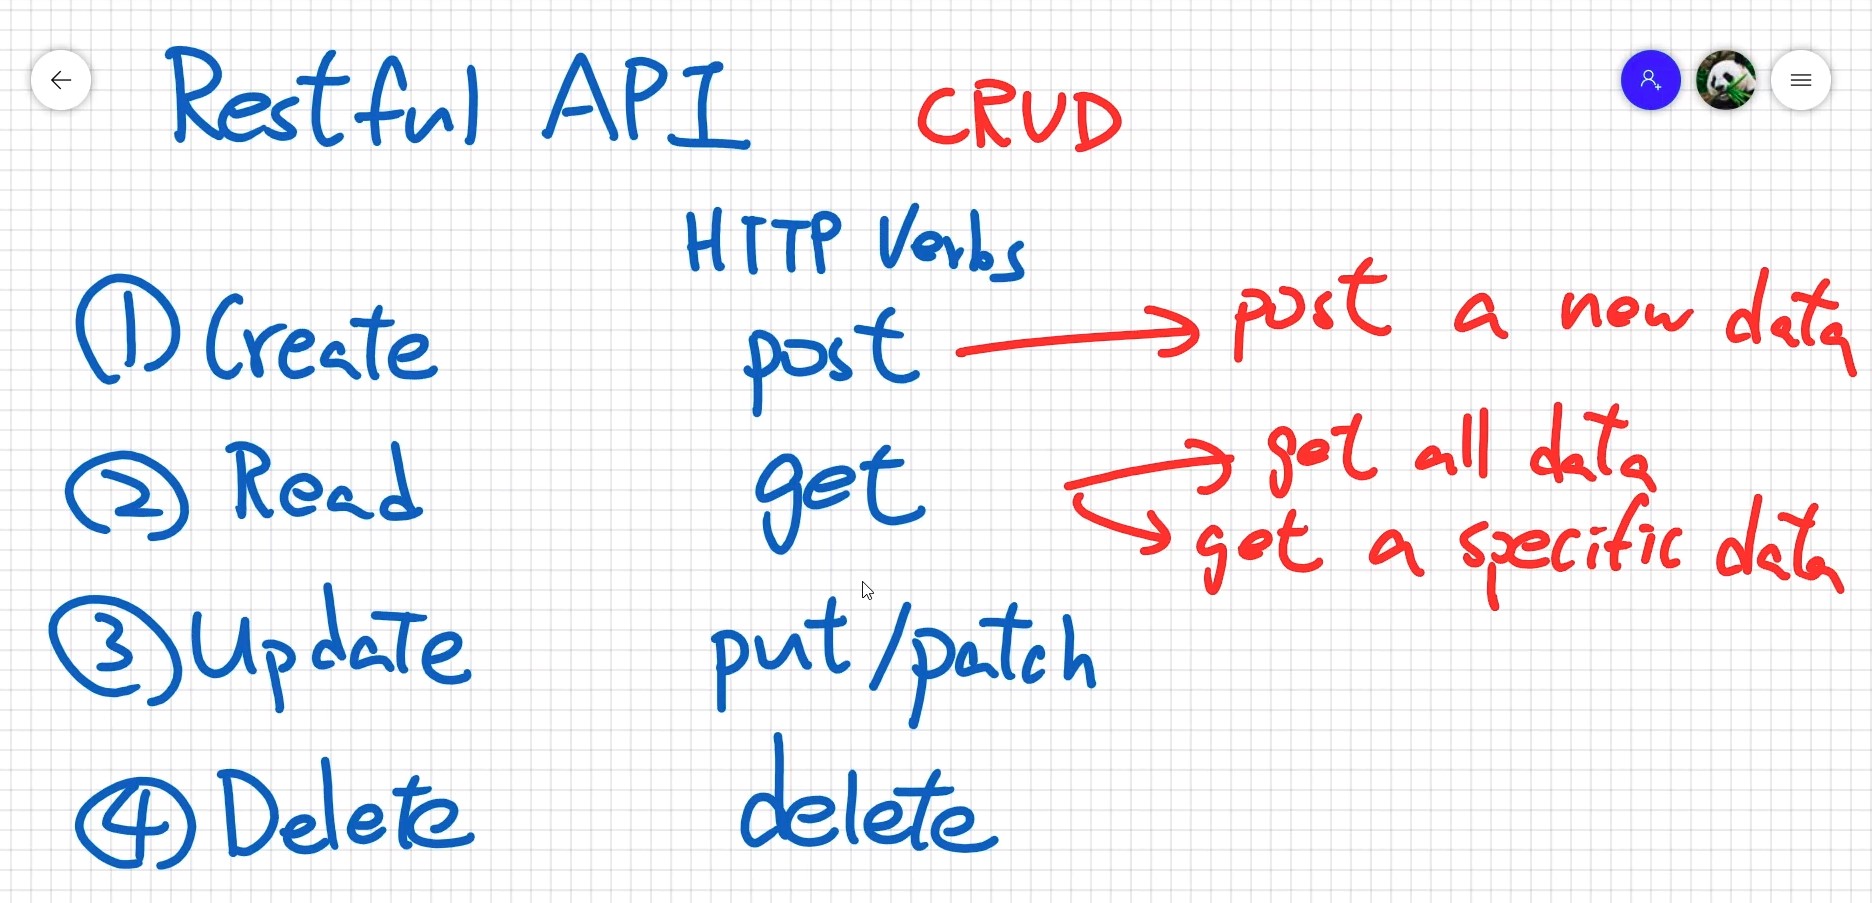 Restful API CRUD
HTTP Verbs
1 Create post → post a new data
2 Read get → get all data
→ get a specific data
3 Update put/patch
4 Delete delete